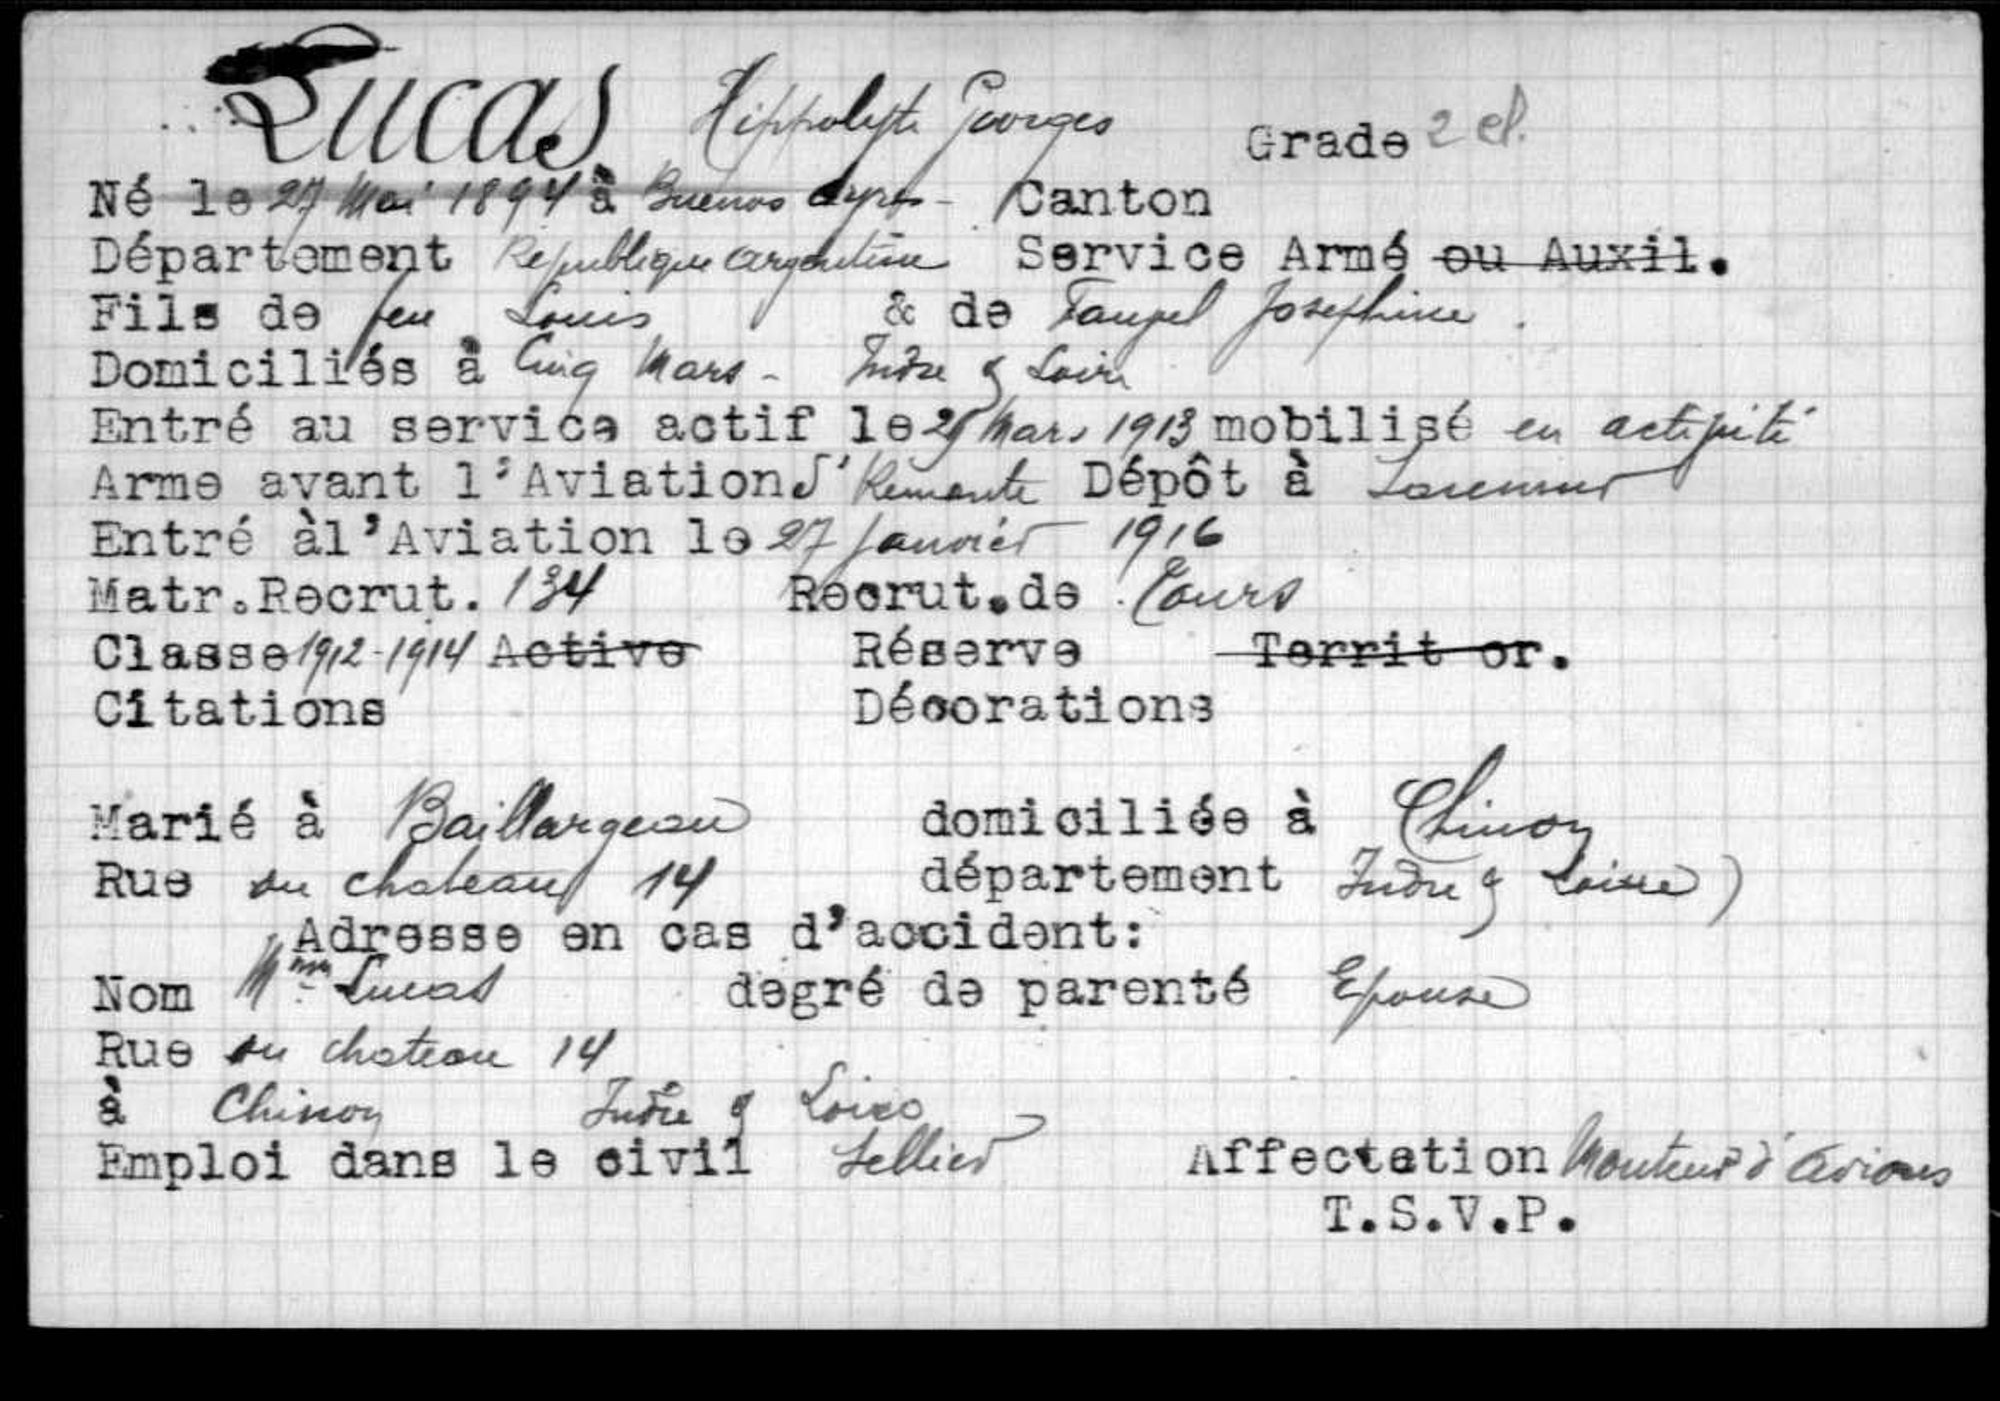 Lucas Hippolyte Georges Grade 2 cl.
Né le 27 Mai 1894 à Buenos Ayres - Canton
Département République argentine Service Armé ou Auxil.
Fils de feu Louis & de Josephine.
Domiciliés à Cinq Mars - Indre & Loire
Entré au service actif le Mars 1913 mobilisé en activité
Arme avant l'Aviation Remonte Dépôt à
Entré àl'Aviation le 27 Janvier 1916
Matr.Recrut. 134 Recrut.de Tours
Classe 1912-1914 Active Réserve Territ or.
Citations Décorations
Marié à Baillargeau domiciliée à Chinon
Rue du chateau 14 département Indre & Loire)
Adresse en cas d'accident:
Nom Mme Lucas degré de parenté Epouse
Rue du chateau 14
à Chinon Indre & Loire
Emploi dans le civil Sellier Affectation Monteur d'avions
T.S.V.P.